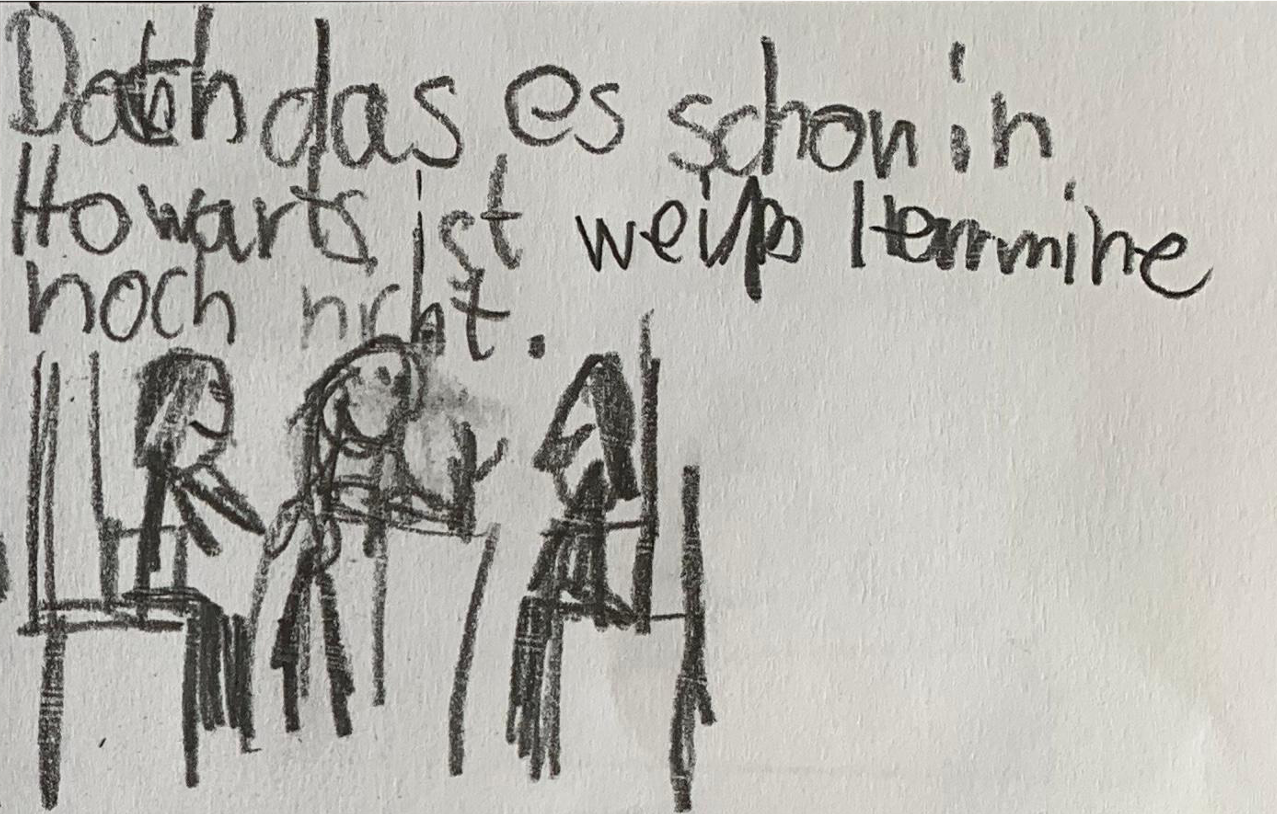 Doch das es schon in
Howarts ist weiß Hermine
noch nicht.